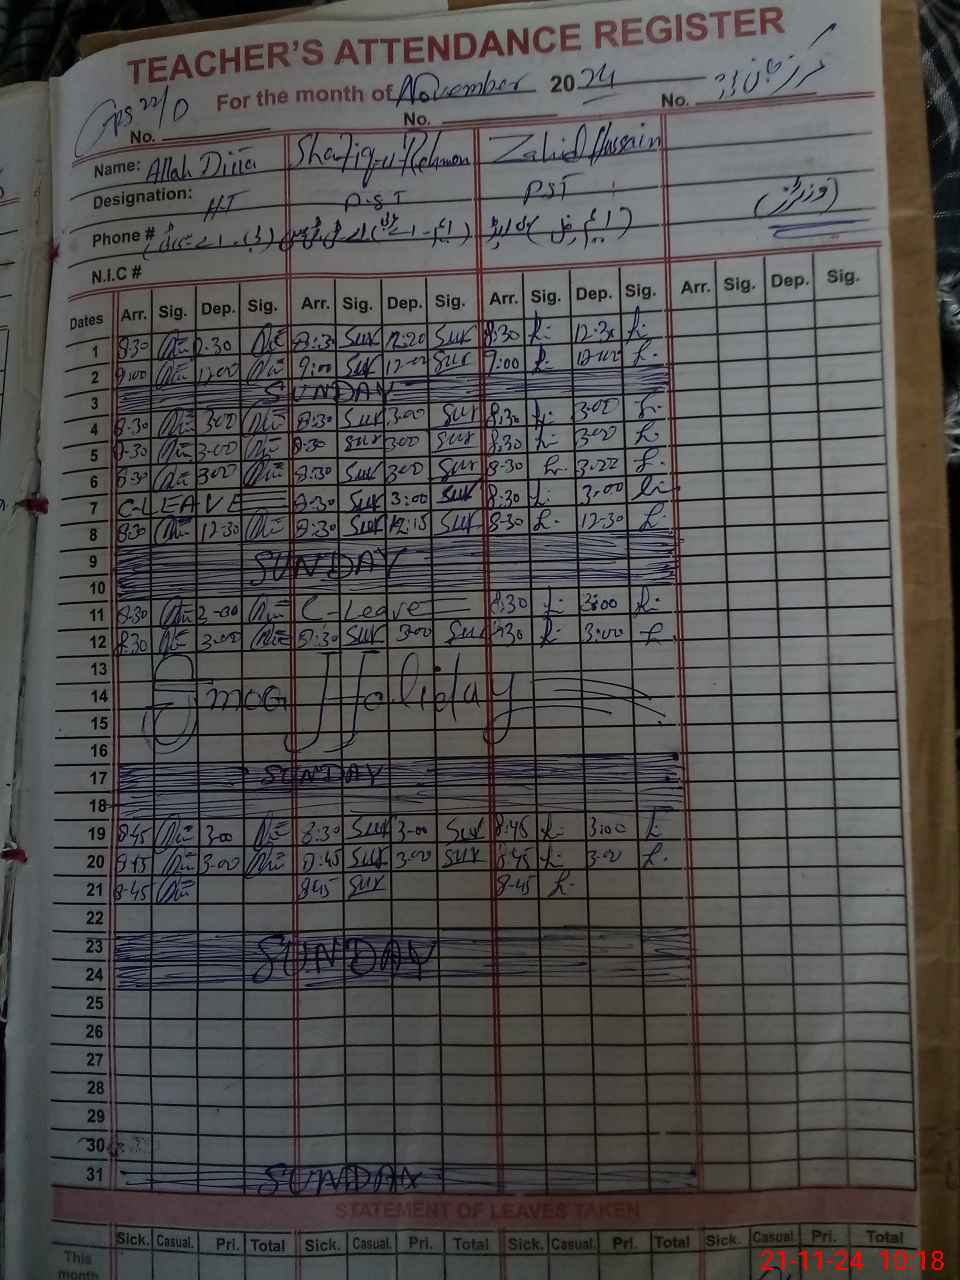 TEACHER'S ATTENDANCE REGISTER
For the month of November 2024
GPS 22/D
No. No. No.
Name: Allah Ditta Shafiq-u-Rehman Zahid Hussain
Designation: HT P.S.T PST
Phone #
N.I.C #
Dates Arr. Sig. Dep. Sig. Arr. Sig. Dep. Sig. Arr. Sig. Dep. Sig. Arr. Sig. Dep. Sig.
1 8:30 2:30 8:30 SUR 12:20 SUR 8:30 12:30
2 9:00 12:00 9:00 SUR 12:00 SUR 9:00 12:00
3 SUNDAY
4 8:30 3:00 8:30 SUR 3:00 SUR 8:30 3:00
5 8-30 3:00 8:30 SUR 3:00 SUR 8:30 3:00
6 8:30 3:00 8:30 SUR 3:00 SUR 8-30
7 C-LEAVE 8:30 SUR 3:00 SUR 8:30 3:00
8 8:30 12-30 8:30 SUR 12:15 SUR 8-30 12-30
9 SUNDAY
10
11 8:30 3-00 C-Leave 8:30 3:00
12 8:30 3:00 8:30 SUR 3:00 SUR 8:30 3:00
13
14 Smog Holiday
15
16
17 SUNDAY
18
19 8:45 3:00 8:30 SUR 3-00 SUR 8:45 3:00
20 8:45 3:00 8:45 SUR 3:00 SUR 8:45 3:00
21 8-45 8:45 SUR 8-45
22
23 SUNDAY
24
25
26
27
28
29
30
31 SUNDAY
STATEMENT OF LEAVES TAKEN
Sick. Casual. Pri. Total Sick. Casual. Pri. Total Sick. Casual. Pri. Total Sick. Casual. Pri. Total
This month
21-11-24 10:18